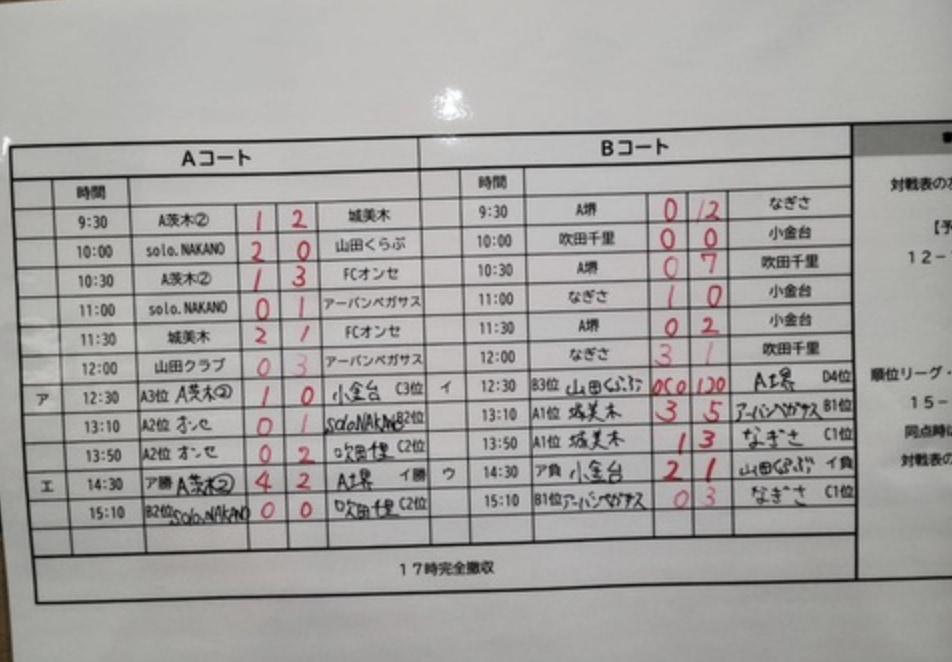 Aコート Bコート
時間 時間
9:30 A茨木② 1 2 城美木 9:30 A堺 0 12 なぎさ
10:00 solo.NAKANO 2 0 山田くらぶ 10:00 吹田千里 0 0 小金台
10:30 A茨木② 1 3 FCオンセ 10:30 A堺 0 7 吹田千里
11:00 solo.NAKANO 0 1 アーバンペガサス 11:00 なぎさ 1 0 小金台
11:30 城美木 2 1 FCオンセ 11:30 A堺 0 2 小金台
12:00 山田クラブ 0 3 アーバンペガサス 12:00 なぎさ 3 1 吹田千里
ア 12:30 A3位 A茨木② 1 0 小金台 C3位 イ 12:30 B3位 山田くらぶ A堺 D4位
13:10 A2位 オンセ 0 1 solo.NAKANO B2位 13:10 A1位 城美木 3 5 アーバンペガサス B1位
13:50 A2位 オンセ 0 2 吹田千里 C2位 13:50 A1位 城美木 1 3 なぎさ C1位
エ 14:30 ア勝 A茨木② 4 2 A堺 イ勝 ウ 14:30 ア負 小金台 2 1 山田くらぶ イ負
15:10 B2位 solo.NAKANO 0 0 吹田千里 C2位 15:10 B1位 アーバンペガサス 0 3 なぎさ C1位
17時完全撤収
対戦表の
【予
12-
順位リーグ・
15-
同点時
対戦表の